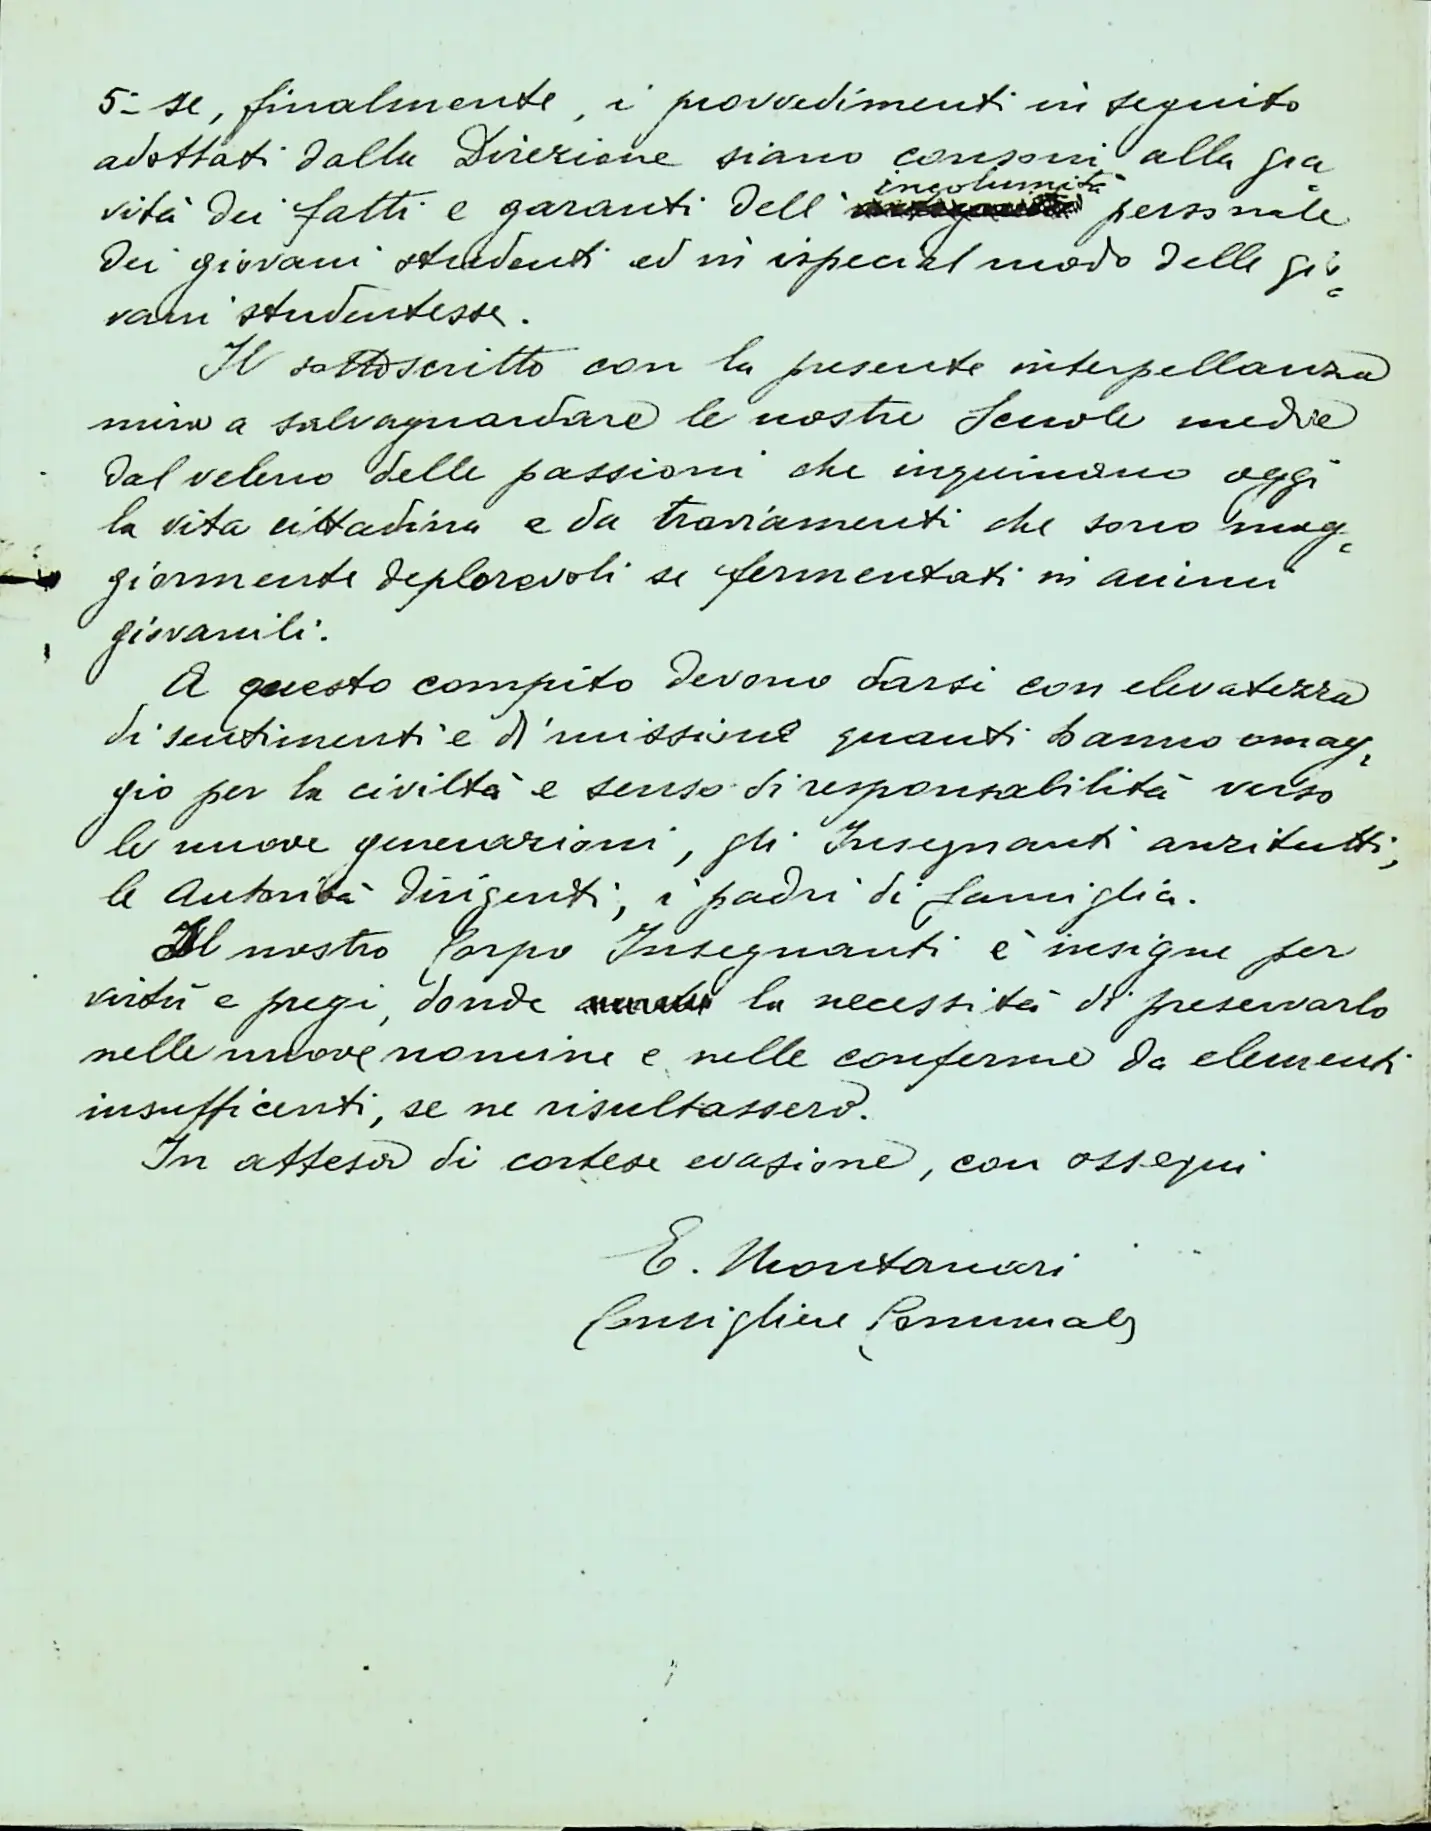 5- se, finalmente, i provvedimenti in seguito
adottati dalla Direzione siano consoni alla gra
vità dei fatti e garanti dell'incolumità personale
dei giovani studenti ed in ispecial modo delle gio=
vani studentesse.
Il sottoscritto con la presente interpellanza
mira a salvaguardare le nostre Scuole medie
dal veleno delle passioni che inquinano oggi
la vita cittadina e da traviamenti che sono mag=
giormente deplorevoli se fermentati in animi
giovanili.
A questo compito devono darsi con elevatezza
di sentimenti e di missione quanti hanno omag=
gio per la civiltà e senso di responsabilità verso
le nuove generazioni, gli Insegnanti anzitutti,
le Autorità dirigenti, i padri di famiglia.
Il nostro Corpo Insegnanti è insigne per
virtù e pregi, donde la necessità di preservarlo
nelle nuove nomine e nelle conferme da elementi
insufficenti, se ne risultassero.
In attesa di cortese evasione, con ossequi
E. Montanari
Consigliere Comunale